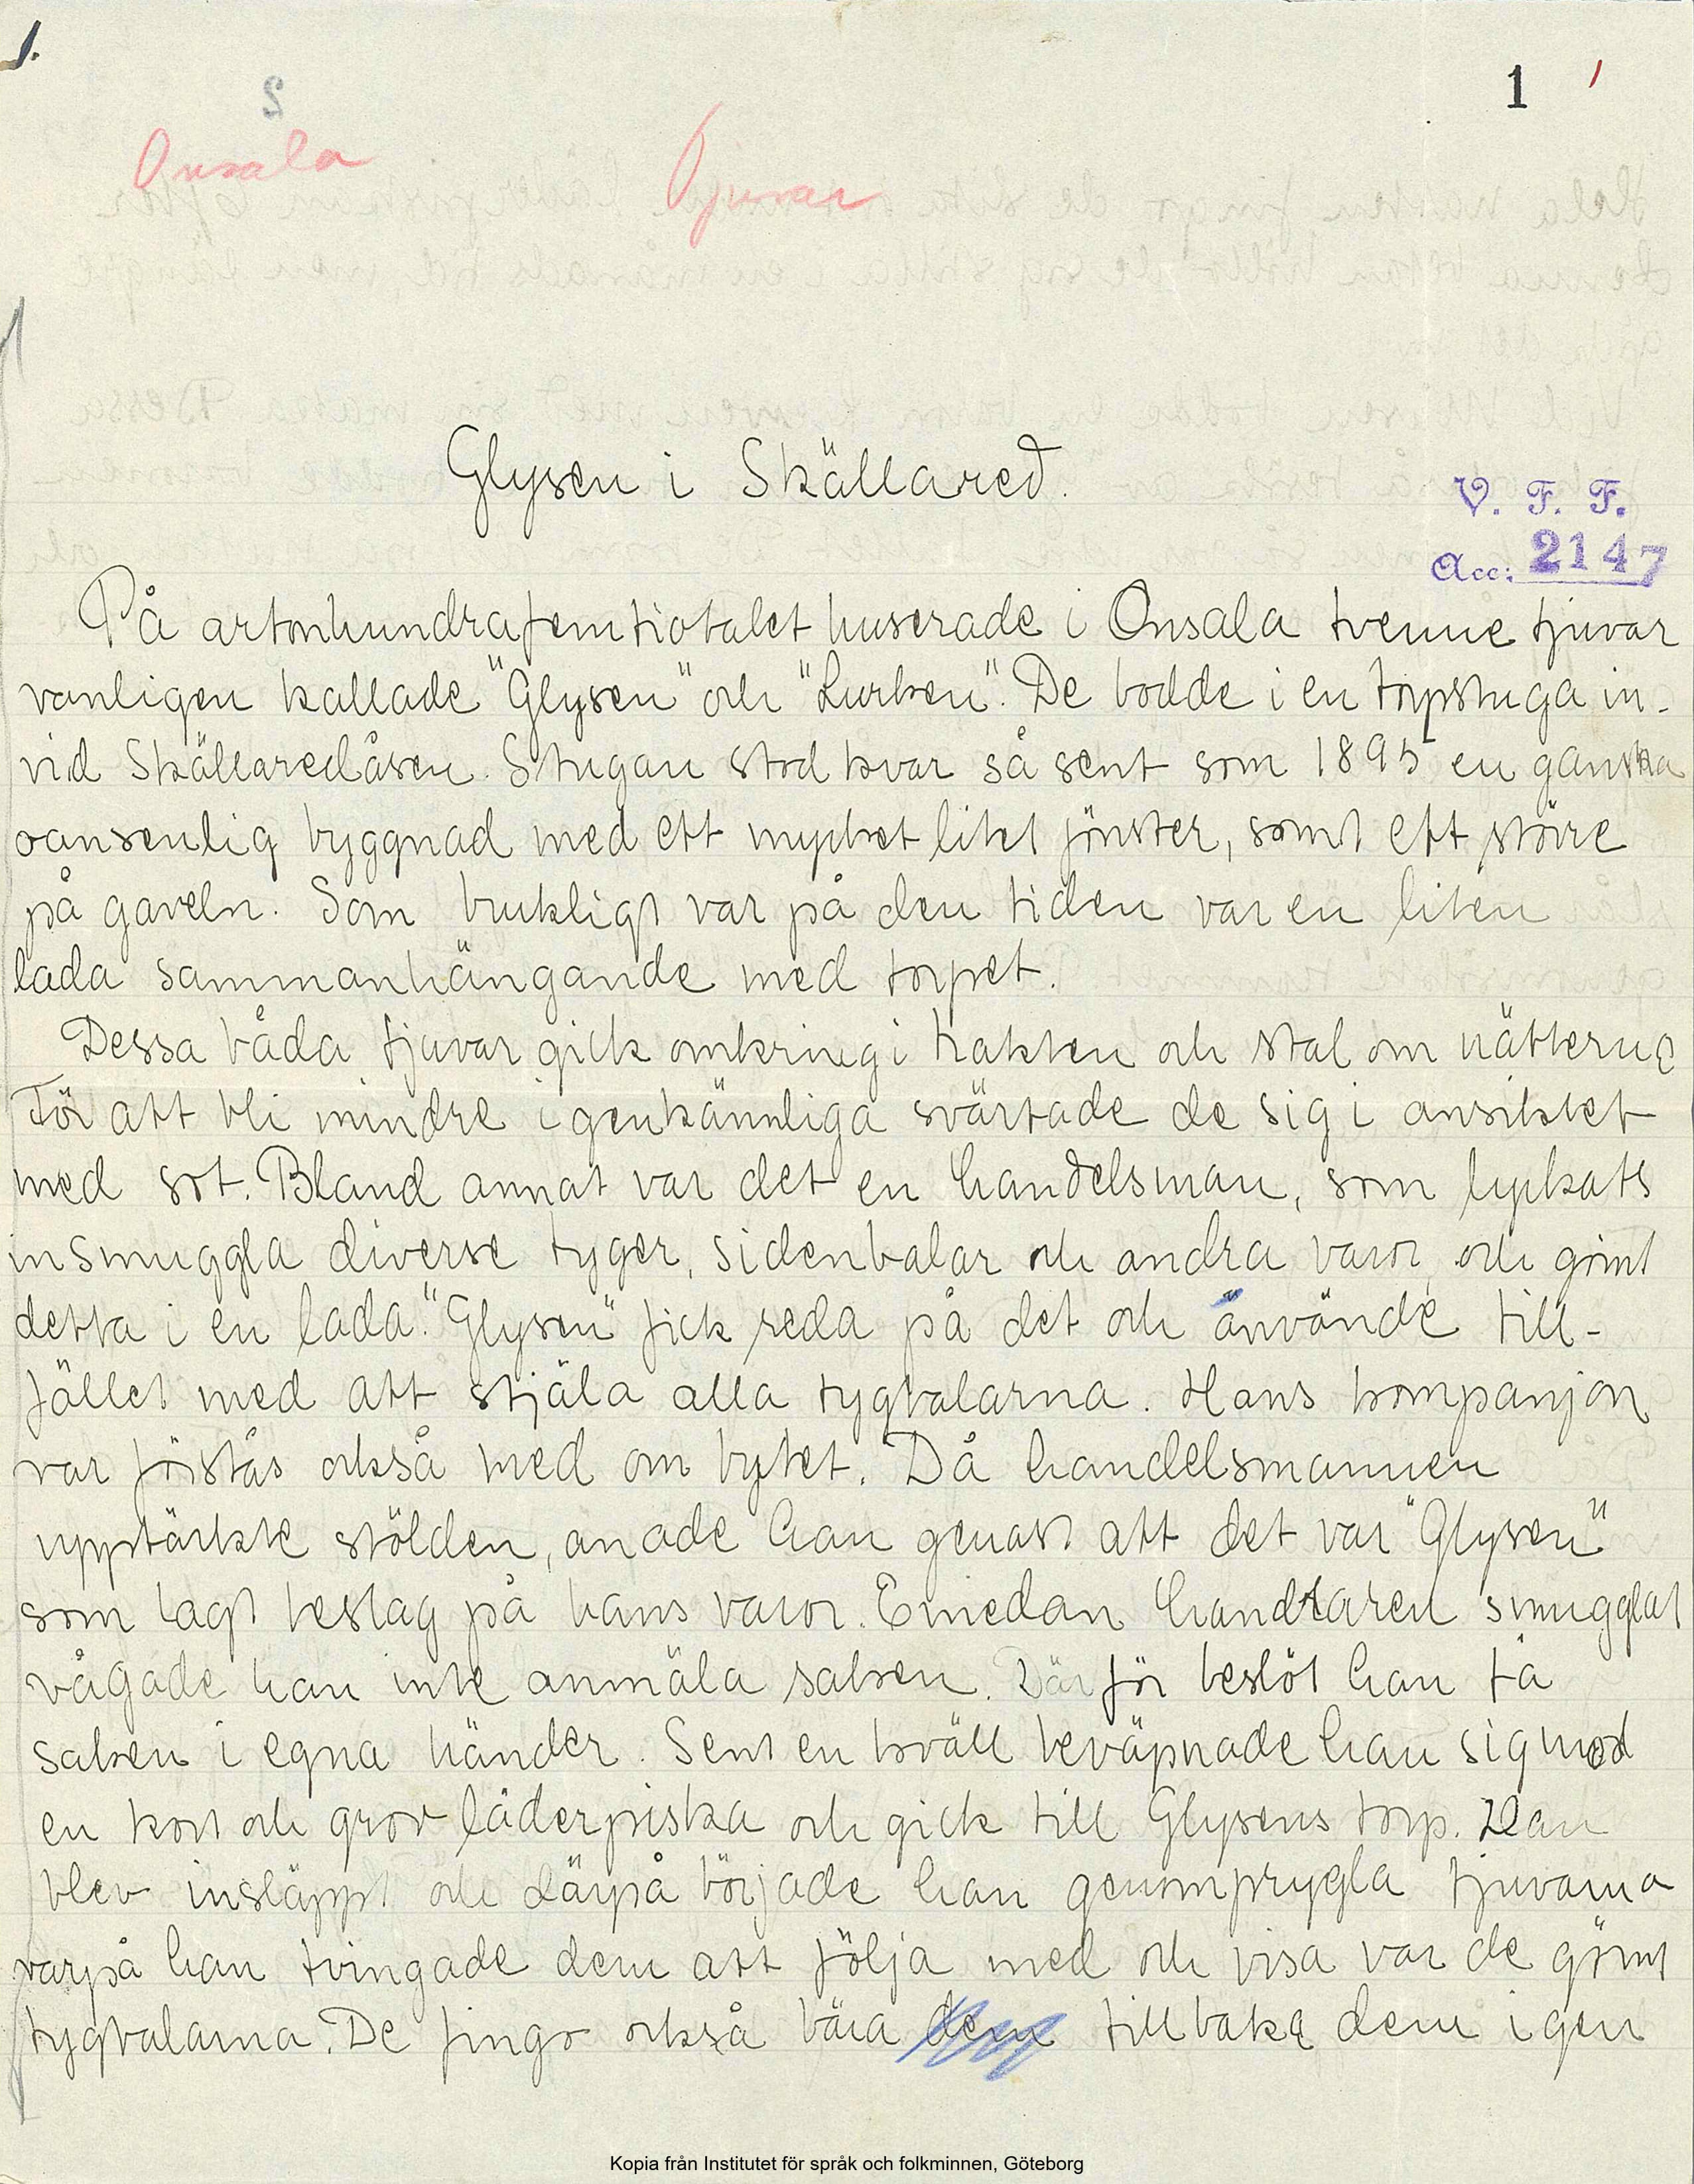 1.
1 /
2
Onsala
Tjuvar
Glysen i Skällared.
V. F. F.
Acc: 2147
På artonhundrafemtiotalet huserade i Onsala tvenne tjuvar
vanligen kallade "Glysen" och "Lurken". De bodde i en torpstuga in-
vid Skällaredåsen. Stugan stod kvar så sent som 1895 en ganska
oansenlig byggnad med ett mycket litet fönster, samt ett större
på gaveln. Som brukligt var på den tiden var en liten
lada sammanhängande med torpet.
Dessa båda tjuvar gick omkring i trakten och stal om nätterna
För att bli mindre igenkännliga svärtade de sig i ansiktet
med sot. Bland annat var det en handelsman, som lyckats
insmuggla diverse tyger, sidenbalar och andra varor, och gömt
detta i en lada. "Glysen" fick reda på det och använde till-
fället med att stjäla alla tygbalarna. Hans kompanjon
var förstås också med om bytet. Då handelsmannen
upptäckte stölden, anade han genast att det var "Glysen"
som lagt beslag på hans varor. Emedan handlaren smugglat
vågade han inte anmäla saken. Därför beslöt han ta
saken i egna händer. Sent en kväll beväpnade han sig med
en kort och grov läderpiska och gick till Glysens torp. Han
blev insläppt och därpå började han genomprygla tjuvarna
varpå han tvingade dem att följa med och visa var de gömt
tygbalarna. De fingo också bära dem tillbaka dem igen
Kopia från Institutet för språk och folkminnen, Göteborg